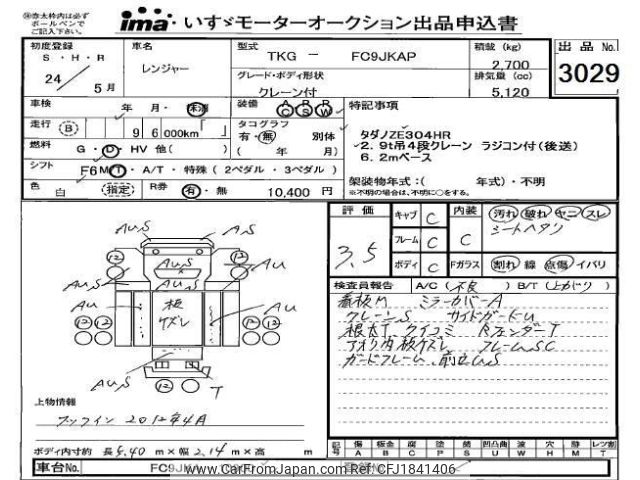 ㊟赤太枠内は必ず
ボールペンで
ご記入下さい。
ima いすゞモーターオークション出品申込書
初度登録 車名 型式 TKG － FC9JKAP 積載 (kg) 出品 No.
S ・ H ・ R レンジャー 2,700
24 5月 グレード・ボディ形状 排気量 (cc) 3029
クレーン付 5,120
車検 年 月・抹消 装備 AC PS PW 特記事項
走行 B 9 6 000km「 」 タコグラフ タダノZE304HR
有・無 別体 ✓2. 9t吊4段クレーン ラジコン付(後送)
燃料 G・D・HV 他( ) ( 年 月) 6. 2mベース
シフト F6 MT・A/T・特殊 ( 2ペダル ・ 3ペダル ) 架装物年式：( 年式)・不明
色 白 (指定) R券 有・無 10,400 円 ※不明の場合は、不明に○をする。
評価 キャブ C 内装 汚れ 破れ ヤニ スレ
3.5 フレーム C C シートヘタリ
ボディ C Fガラス 割れ 線 点傷 イバリ
検査員報告 A/C (不良) B/T (上がり)
看板M ミラーカバーA
クレーンS サイドガードU
根太T クイコミ RフェンダーT
アオリ内板ケズレ フレームSC
ガードフレーム、前立U,S
Au,S A,S
12 12
Au Au,S Au
Au 板 Au
ケズレ
12 12 12 12
Au,S
12 T
上物情報
フソウイン 2012年4月
ボディ内寸約 長 5.40 m×幅 2.14 m×高 m
記号 傷 板金 腐 塗 錆 凹凸曲 波 穴 跡 レンズ割
A B C P S U W H M T
車台No. FC9JK
www.CarFromJapan.com Ref: CFJ1841406